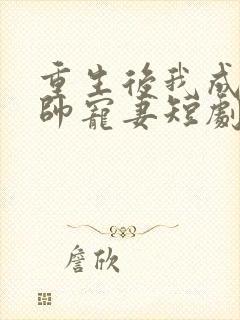 重生後我成
帥寵妻短劇
詹欣